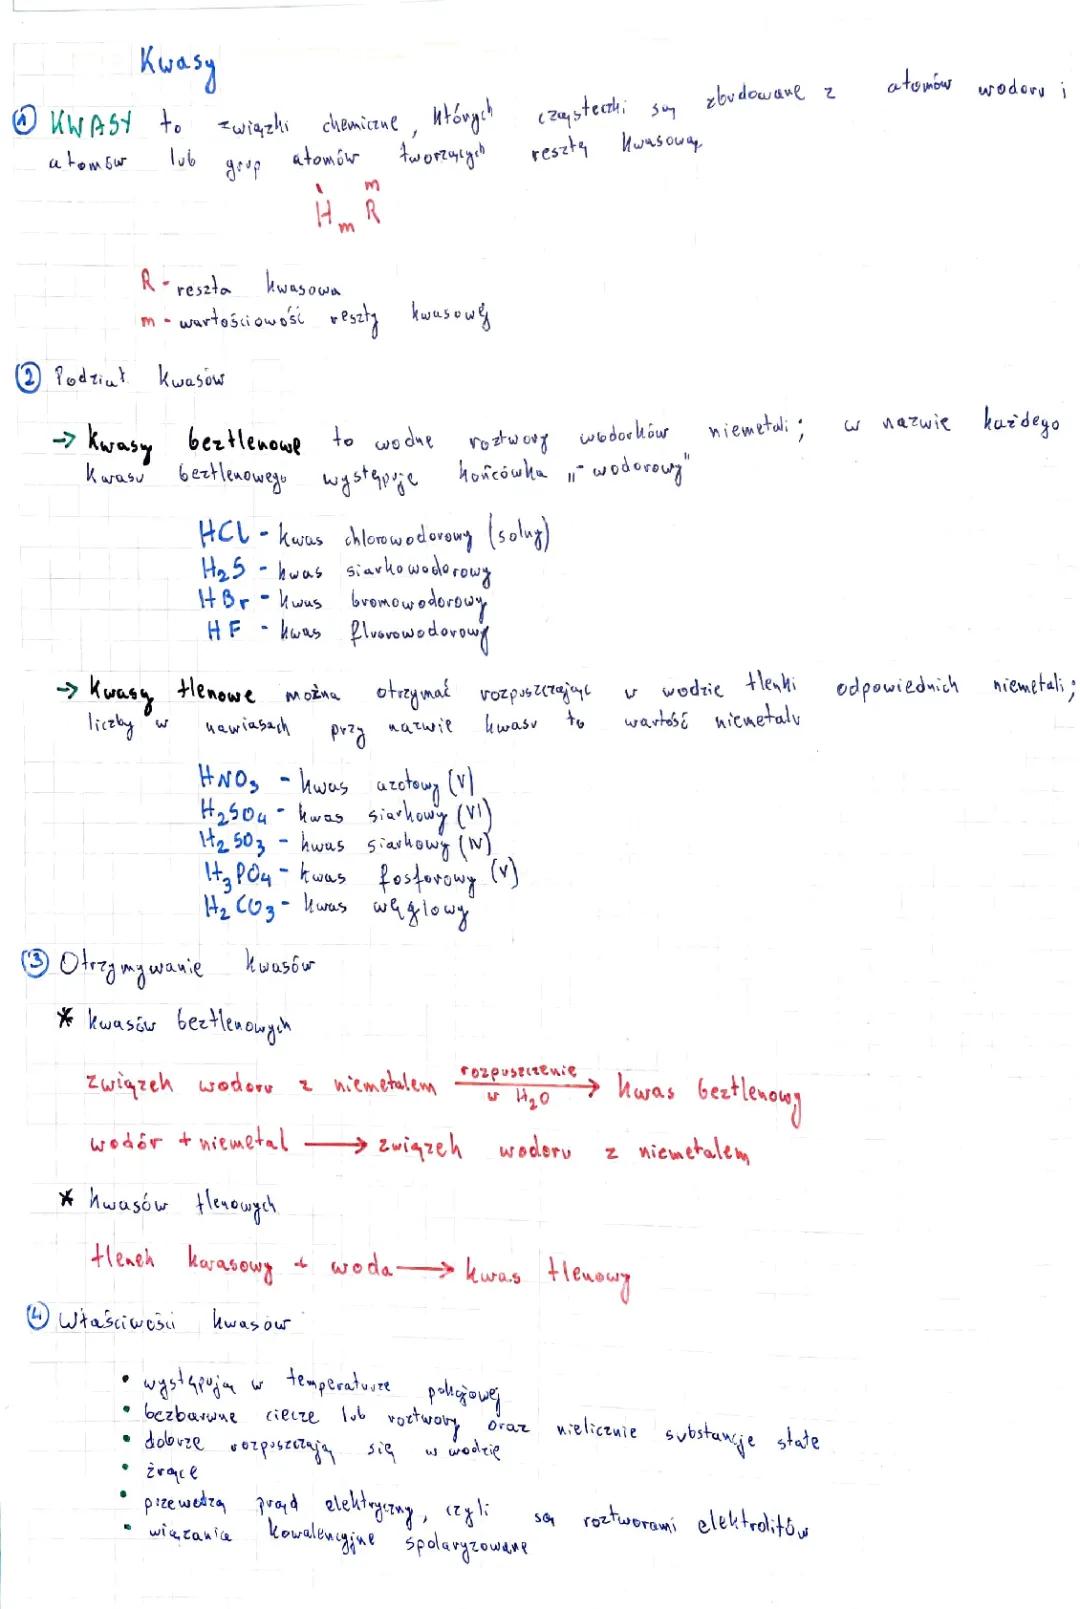 Kwasy
① KWASY to związki chemiczne, których cząsteczki są zbudowane z atomów wodoru i
atomów lub grup atomów tworzących resztę kwasową
I m
HₘR
R - reszta kwasowa
m - wartościowość reszty kwasowej
② Podział kwasów
→ Kwasy beztlenowe to wodne roztwory wodorków niemetali; w nazwie każdego
kwasu beztlenowego występuje końcówka „-wodorowy"
HCl - kwas chlorowodorowy (solny)
H₂S - kwas siarkowodorowy
HBr - kwas bromowodorowy
HF - kwas fluorowodorowy
→ Kwasy tlenowe można otrzymać rozpuszczając w wodzie tlenki odpowiednich niemetali;
liczby w nawiasach przy nazwie kwasu to wartość niemetalu
HNO₃ - kwas azotowy (V)
H₂SO₄ - kwas siarkowy (VI)
H₂SO₃ - kwas siarkowy (IV)
H₃PO₄ - kwas fosforowy (V)
H₂CO₃ - kwas węglowy
③ Otrzymywanie kwasów
* kwasów beztlenowych
związek wodoru z niemetalem rozpuszczenie w H₂O → kwas beztlenowy
wodór + niemetal → związek wodoru z niemetalem
* kwasów tlenowych
tlenek kwasowy + woda → kwas tlenowy
④ Właściwości kwasów
• występują w temperaturze pokojowej
• bezbarwne ciecze lub roztwory oraz nielicznie substancje stałe
• dobrze rozpuszczają się w wodzie
• żrące
• przewodzą prąd elektryczny, czyli są roztworami elektrolitów
• wiązania kowalencyjne spolaryzowane